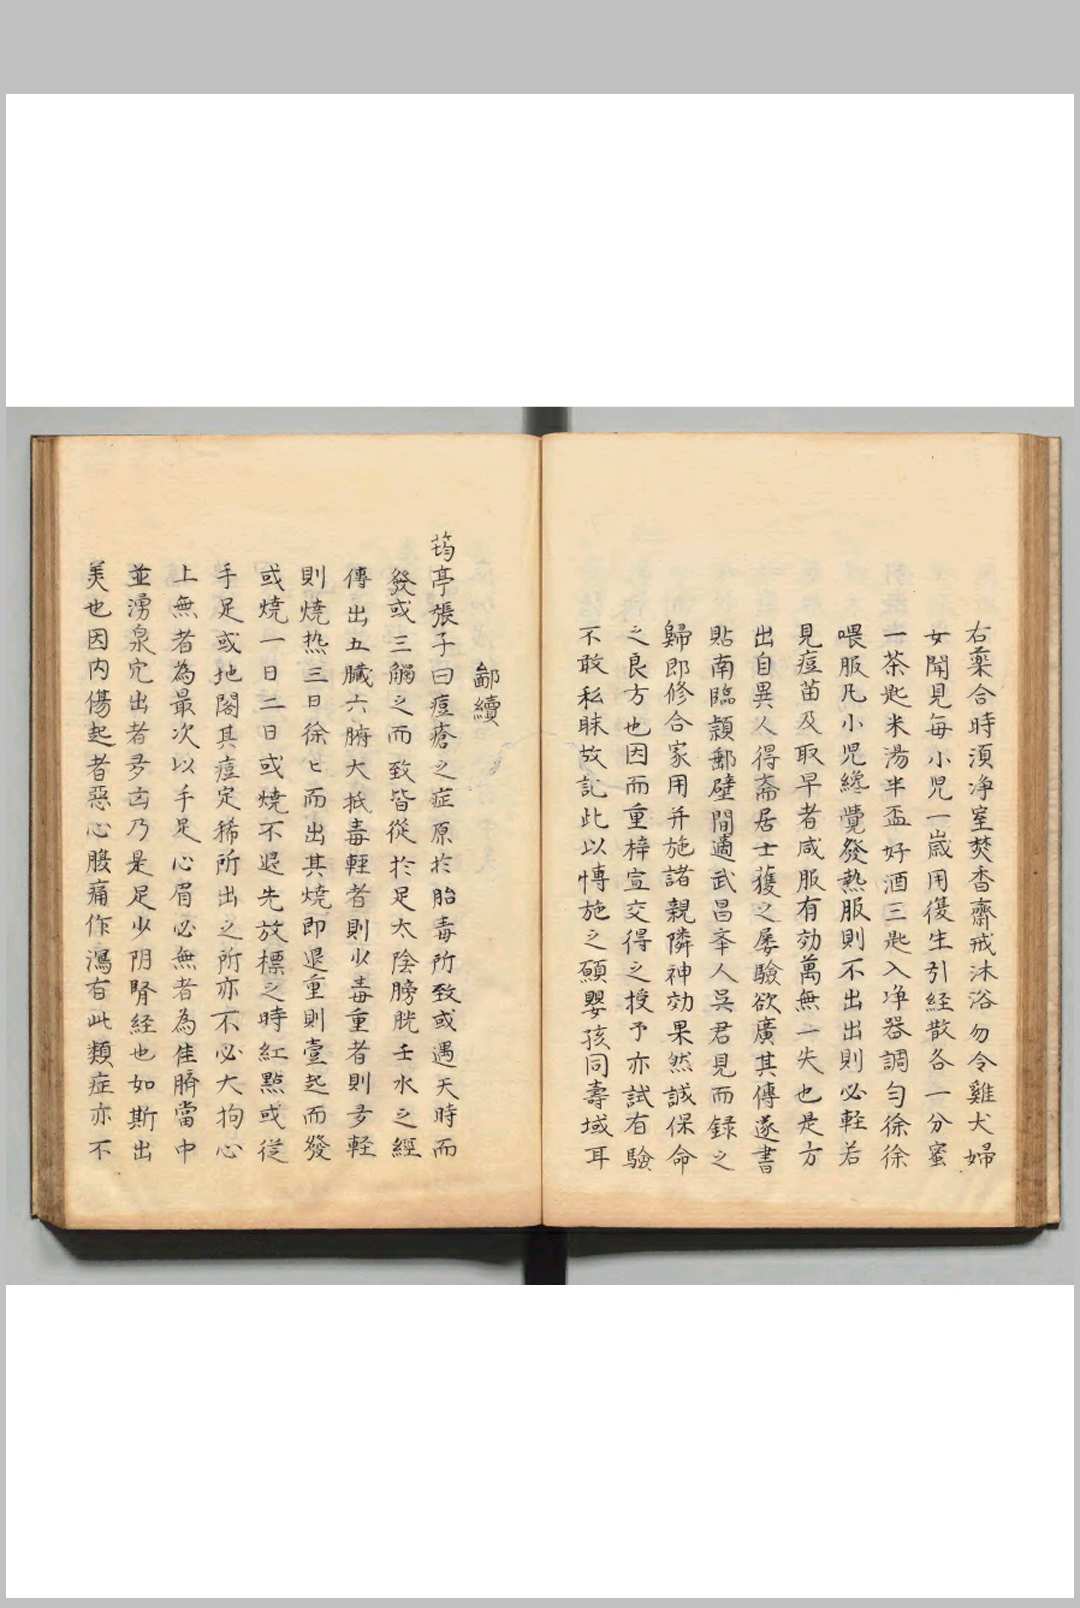 右藥合時須净室焚香齋戒沐浴勿令雞犬婦
女聞見每小児一歳用復生引経散各一分蜜
一茶匙米湯半盃好酒三匙入净器調勻徐徐
喂服凡小児纔覺發熱服則不出出則必軽若
見痘苗及取早者咸服有効萬無一失也是方
出自異人得斋居士獲之屢驗欲廣其傳遂書
貼南臨頴郵壁間適武昌夲人吳君見而録之
歸即修合家用并施諸親隣神効果然誠保命
之良方也因而重梓宣交得之授予亦試有驗
不敢私昧故記此以愽施之願嬰孩同壽域耳
鄙續
筠亭張子曰痘瘡之症原於胎毒所致或遇天時而
發或三觸之而致皆從於足太陰膀胱壬水之經
傳出五臟六腑大抵毒輕者則少毒重者則多軽
則燒热三日徐〻而出其燒即退重則壹起而發
或燒一日二日或燒不退先放標之時紅點或從
手足或地閣其痘定稀所出之所亦不必大拘心
上無者為最次以手足心眉必無者為佳臍當中
並湧泉穴出者多凶乃是足少阴腎経也如斯出
美也因内傷起者惡心腹痛作瀉有此類症亦不